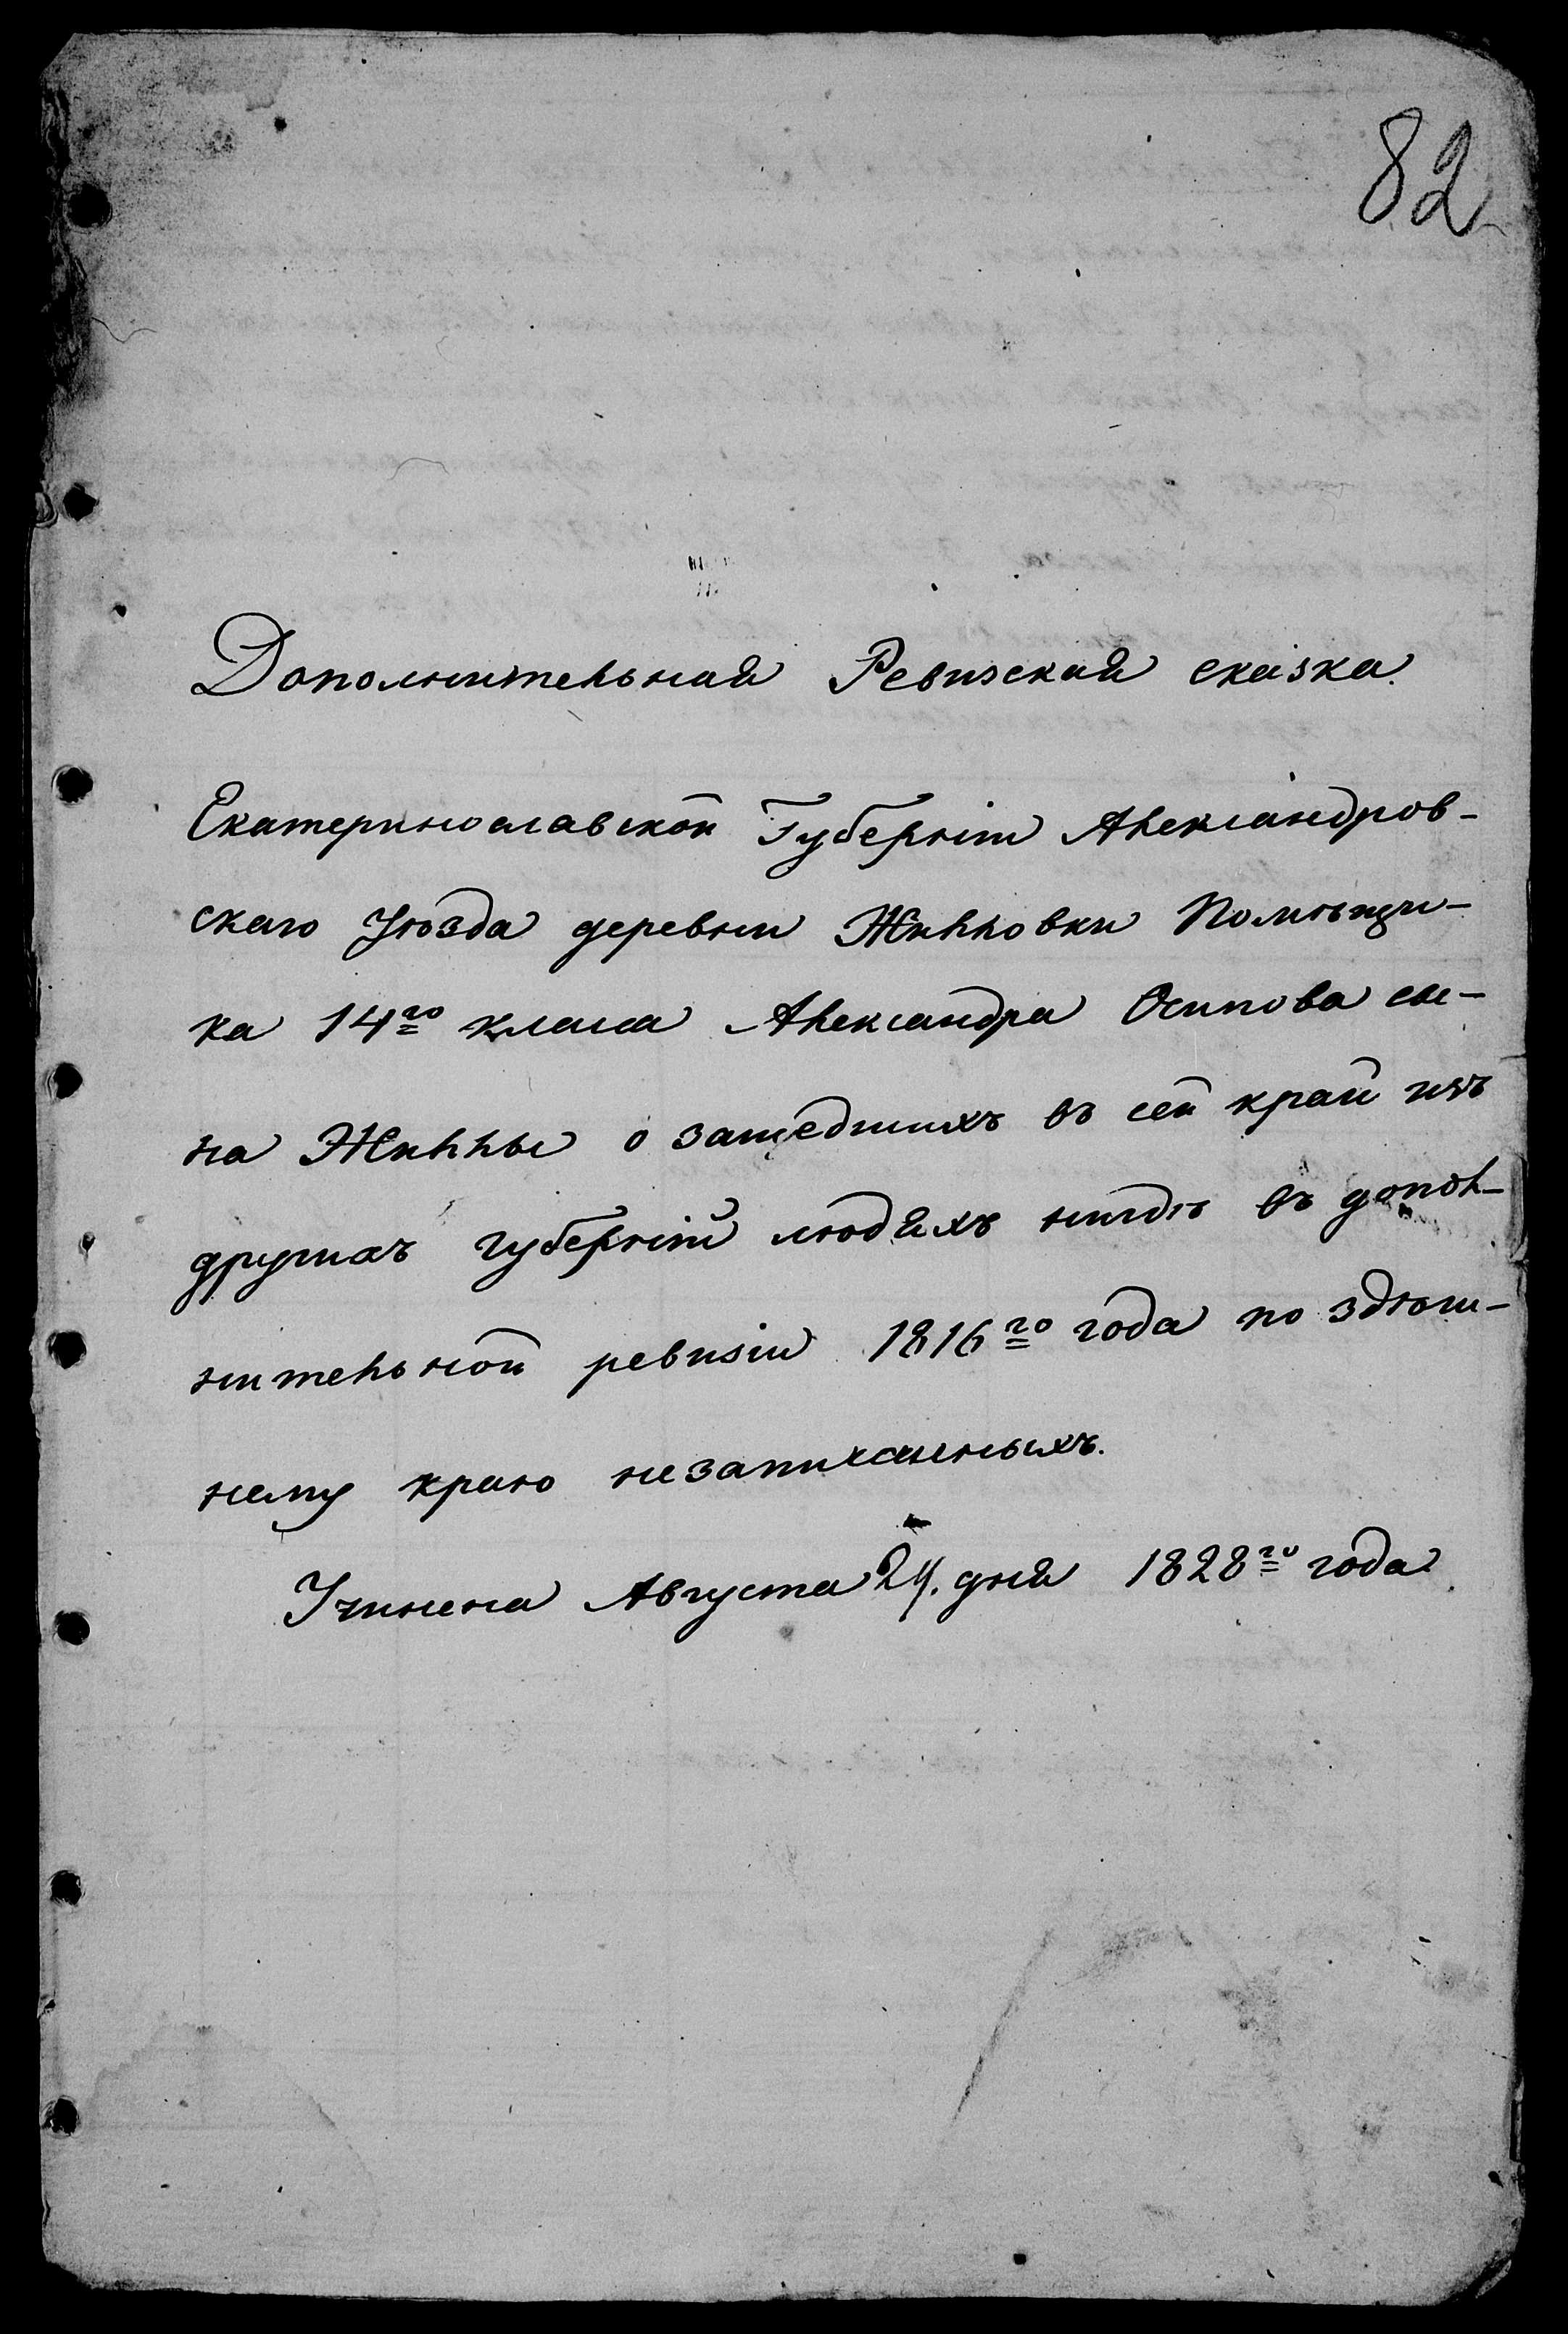 82
Дополнительная Ревизская сказка.
Екатеринославской Губерніи Александров-
скаго Уѣзда деревни Жилловки Помѣщи-
ка 14го класса Александра Осипова сы-
на Жиллы о зашедшихъ въ сей край изъ
другихъ губерній людяхъ нигдѣ въ допол-
нительной ревизіи 1816го года по здѣш-
нему краю незаписанныхъ.
Учинена Августа 24. дня 1828го года.